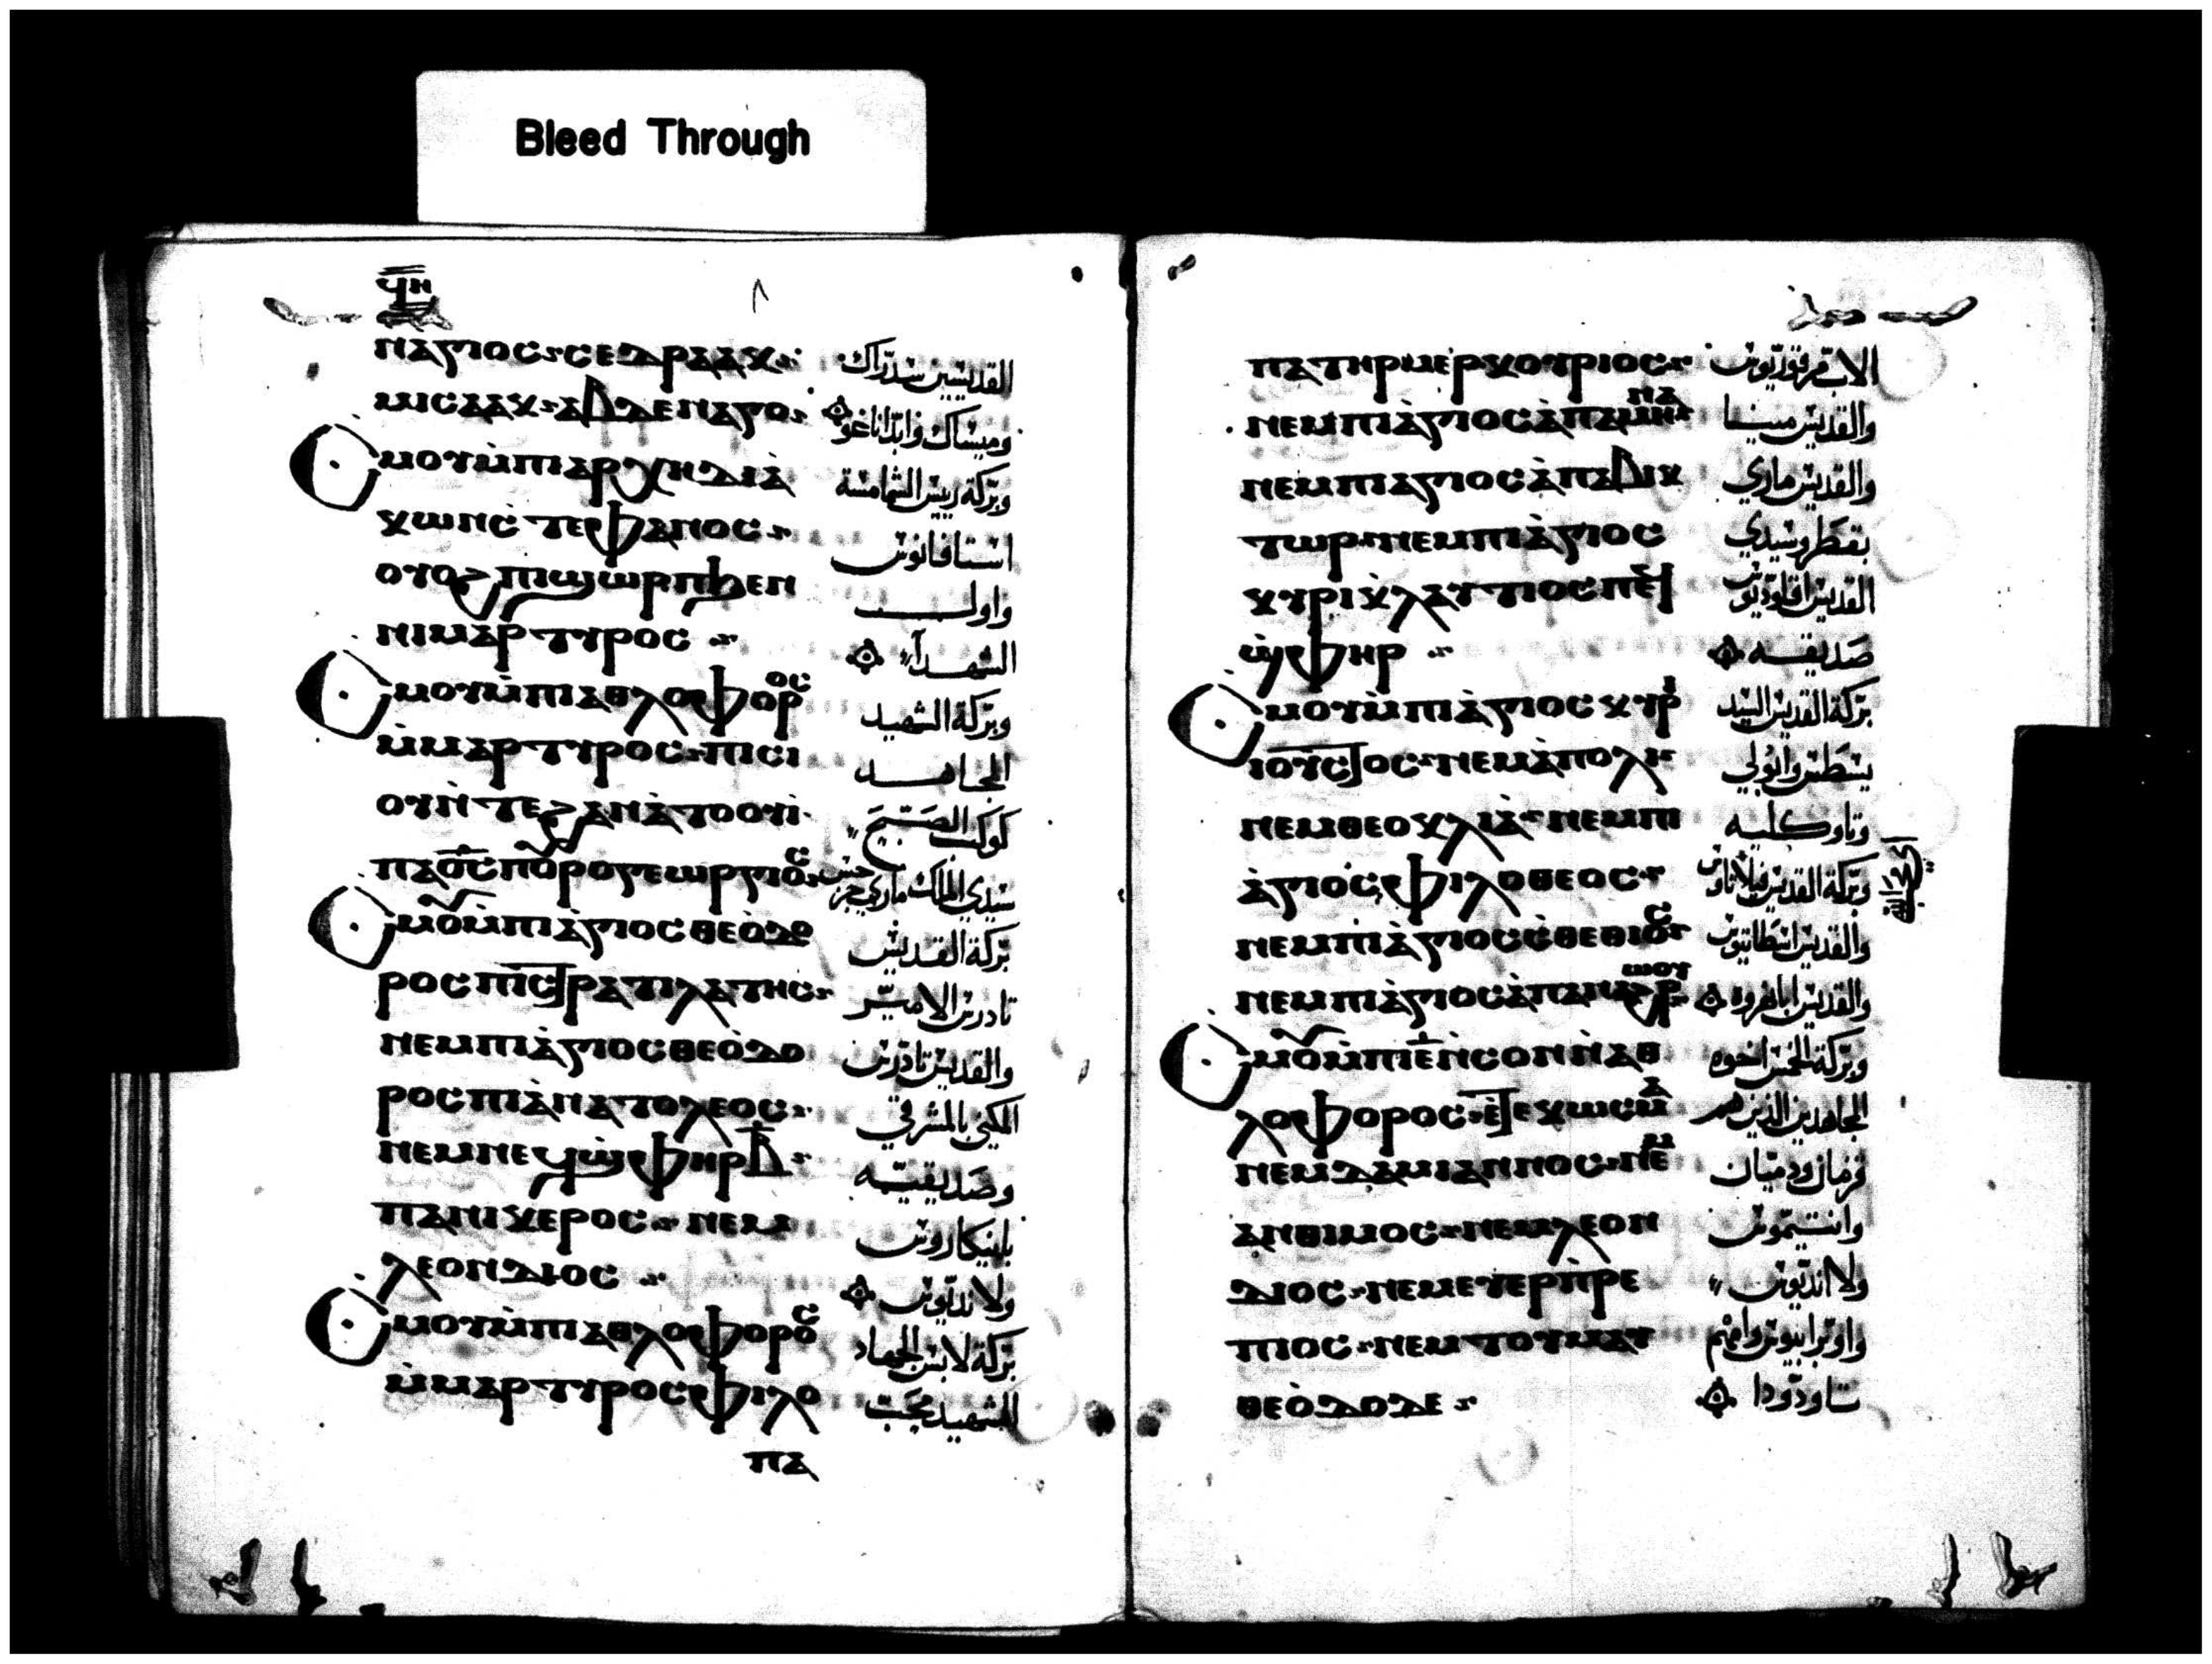 Bleed Through
ϥⲏ
ⲛⲁⲅⲓⲟⲥ ⲥⲉⲇⲣⲁⲁⲭ القديسين سدراك
ⲙⲓⲥⲁⲁⲭ ⲁⲃⲇⲉⲛⲁⲅⲟ وميساك وابداناغو
ⲙⲟⲩⲙ̀ⲡⲓⲁⲣⲭⲏⲇⲓⲁ̀ وبركة رييس الشمامسة
ⲕⲱⲛⲥ̀ⲧⲉⲫⲁⲛⲟⲥ استافانوس
ⲟⲩⲟϩ ⲡⲓϣⲱⲣⲡϧⲉⲛ واول
ⲛⲓⲙⲁⲣⲧⲩⲣⲟⲥ الشهدآ
ⲙⲟⲩⲙ̀ⲡⲓⲁⲑⲗⲟⲫⲟⲣⲟⲥ وبركة الشهيد
ⲙ̀ⲙⲁⲣⲧⲩⲣⲟⲥ ⲡⲓⲥⲓ المجاهد
ⲟⲩⲛ̀ⲧⲉϩⲁⲛⲁ̀ⲧⲟⲟⲩⲓ̀ كوكب الصبح
ⲡⲁⲟ̅ⲥ̅ⲡⲟⲩⲣⲟⲅⲉⲱⲣⲅⲓⲟⲥ سيدي الملك ماري جرجس
ⲙⲟⲩⲙ̀ⲡⲓⲁ̀ⲅⲓⲟⲥⲑⲉⲟ̀ⲇⲟ بركة القديس
ⲣⲟⲥⲡⲓⲥϯⲣⲁⲧⲓⲗⲁⲧⲏⲥ تادرس الامير
ⲛⲉⲙⲡⲓⲁ̀ⲅⲓⲟⲥⲑⲉⲟ̀ⲇⲟ والقديس تادرس
ⲣⲟⲥⲡⲓⲁ̀ⲛⲁⲧⲟⲗⲉⲟⲥ المكنى بالمشرقي
ⲛⲉⲙⲡⲉϥϣ̀ⲫⲏⲣⲃ̅ وصديقيه
ⲡⲁⲛⲓⲕⲉⲣⲟⲥ ⲛⲉⲙ بانيكاروس
ⲗⲉⲟⲛⲇⲓⲟⲥ ولانديوس
ⲙⲟⲩⲙ̀ⲡⲓⲁⲑⲗⲟⲫⲟⲣⲟⲥ بركة لابس الجهاد
ⲙ̀ⲙⲁⲣⲧⲩⲣⲟⲥⲫⲓⲗⲟ الشهيد محب
ⲡⲁ
ⲡⲁⲧⲏⲣⲙⲉⲣⲕⲟⲩⲣⲓⲟⲥ الاب مرقوريوس
ⲛⲉⲙⲡⲓⲁ̀ⲅⲓⲟⲥⲁ̀ⲡⲁⲙⲏⲛⲁ والقديس مينا
ⲛⲉⲙⲡⲓⲁⲅⲓⲟⲥⲁ̀ⲡⲁⲃⲓⲕ والقديس ماري
ⲧⲱⲣ ⲛⲉⲙⲡⲓⲁ̀ⲅⲓⲟⲥ بقطر وسيدي
ⲕⲩⲣⲓⲕ̀ⲗⲁⲩⲧⲓⲟⲥⲡⲉϥ القديس اقلاوديوس
ϣ̀ⲫⲏⲣ صديقه
ⲙⲟⲩⲙ̀ⲡⲓⲁ̀ⲅⲓⲟⲥⲕⲩⲣⲓ بركة القديس السيد
ⲓⲟⲩⲥϯⲟⲥ ⲛⲉⲙⲁ̀ⲡⲟⲗⲓ يسطس وابولي
ⲛⲉⲙⲑⲉⲟⲩⲕⲗⲓⲁ̀ ⲛⲉⲙⲡⲓ وتاوكليه
ⲁ̀ⲅⲓⲟⲥⲫⲓⲗⲟⲑⲉⲟⲥ وبركة القديس فيلاتاوس
ⲛⲉⲙⲡⲓⲁ̀ⲅⲓⲟⲥⲥ̀ⲑⲉⲑⲓⲟⲥ والقديس اسطاتيوس
ⲛⲉⲙⲡⲓⲁ̀ⲅⲓⲟⲥⲁ̀ⲡⲁⲙϩⲣⲱⲟⲩ والقديس ابامهروه
ⲙⲟⲩⲙ̀ⲡⲓⲉ̅ⲛ̀ⲥⲟⲛⲛ̀ⲁⲑ وبركة الخمس اخوه
ⲗⲟⲫⲟⲣⲟⲥ ⲉ̀ϯⲉⲕⲱⲥⲙⲁ المجاهدين الذين هم
ⲛⲉⲙⲇⲁⲙⲓⲁⲛⲛⲟⲥ ⲛⲉⲙ قزمان ودميان
ⲁⲛⲑⲓⲙⲟⲥ ⲛⲉⲙⲗⲉⲟⲛ وانتيموس
ⲇⲓⲟⲥ ⲛⲉⲙⲉⲩⲉⲣⲡ̀ⲣⲉ ولانديوس
ⲡⲓⲟⲥ ⲛⲉⲙⲧⲟⲩⲙⲁⲩ واوبرابيوس وامهم
ⲑⲉⲟ̀ⲇⲟⲇⲉ تاودودا